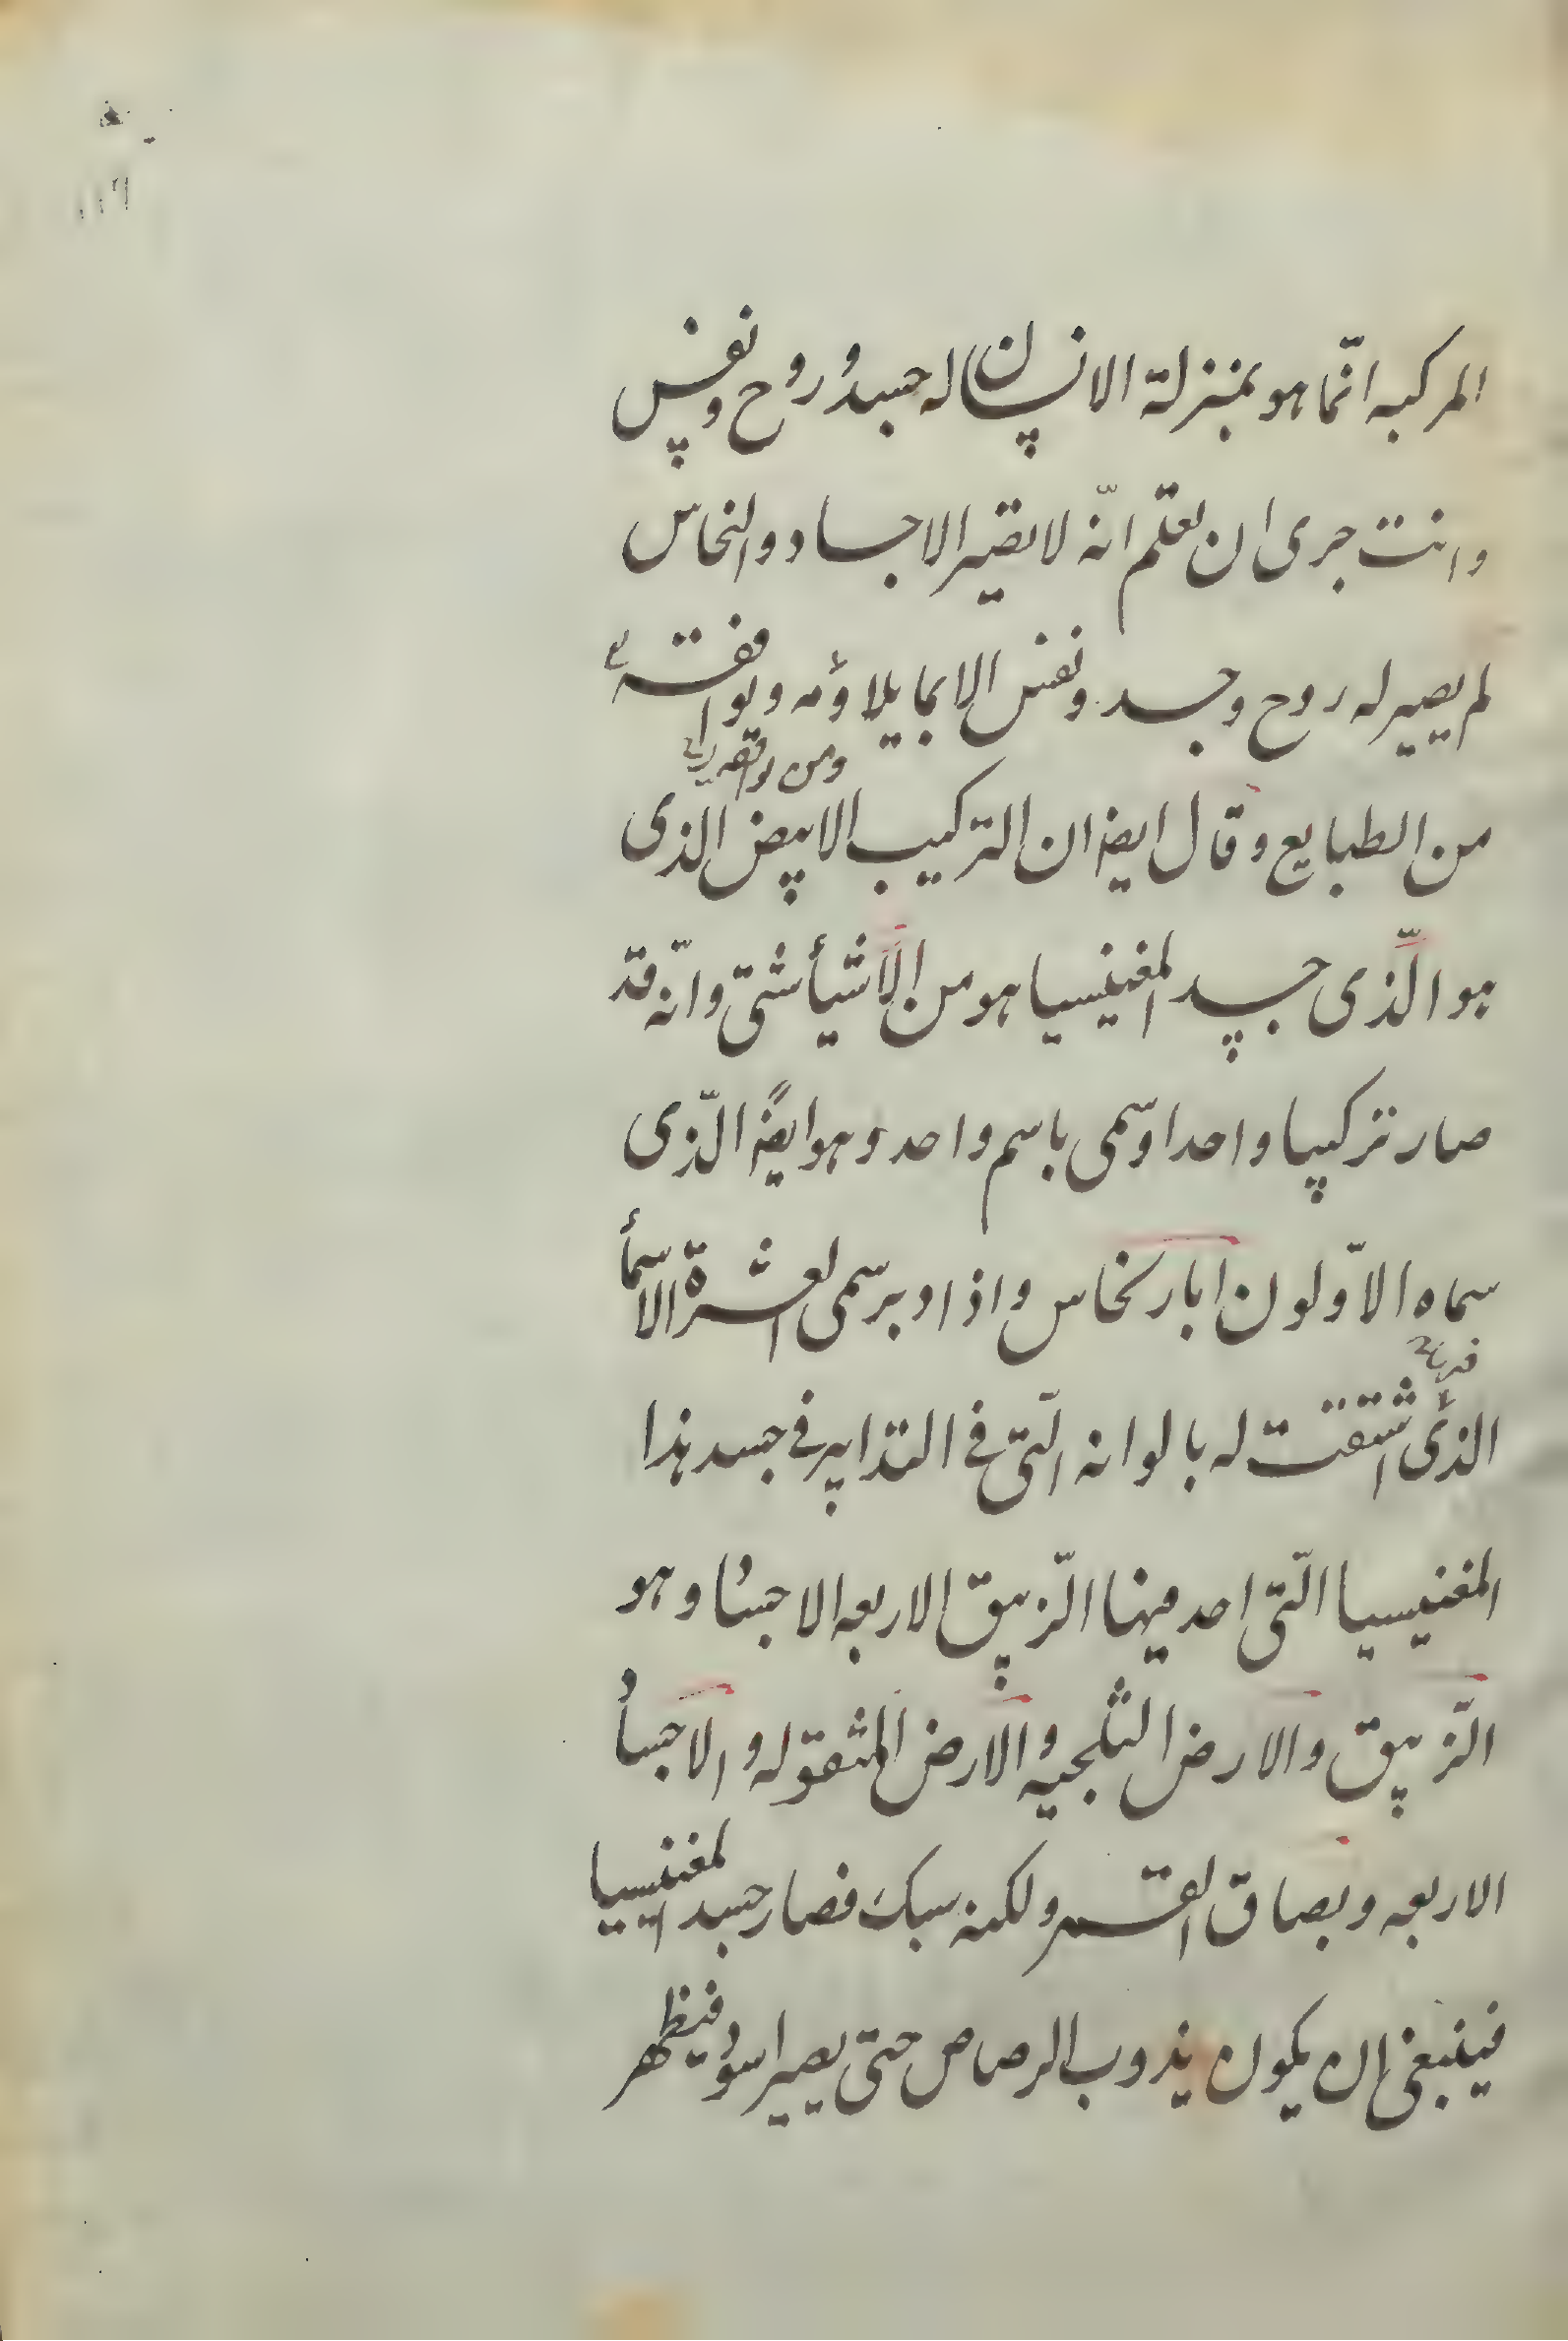 المركبه انّما هو بمنزلة الانسان له جسد و روح و نفس
وانت جرى ان تعلم انّه لا يصير الاجساد و النحاس
لم يصير له روح و جسد و نفس الا بما يلاؤمه و يوافقه
من الطبايع و قال ايضا ان التركيب الابيض الذى
هو الّذى جسد المغنيسيا هو من الأشيأ شتى و انّه قد
صار تركيبا واحدا و سمى باسم واحد و هو ايضاً الّذى
سماه الاوّلون ابار نحاس و اذا دبر سمى العشرة الاسمأ
الذى اشتقت له بالوانه الّتى فى التدابير فى جسد هذا
المغنيسيا الّتى احد فيها الّزيبق الاربعه الاجساد و هو
الّزيبق و الارض الثلجيه و الارض المثقوله و الاجساد
الاربعه و بصاق القمر و لكنه سبك فصار جسد المغنيسيا
فينبغى ان يكون يذوب الرصاص حتى يصير اسود فيظهر